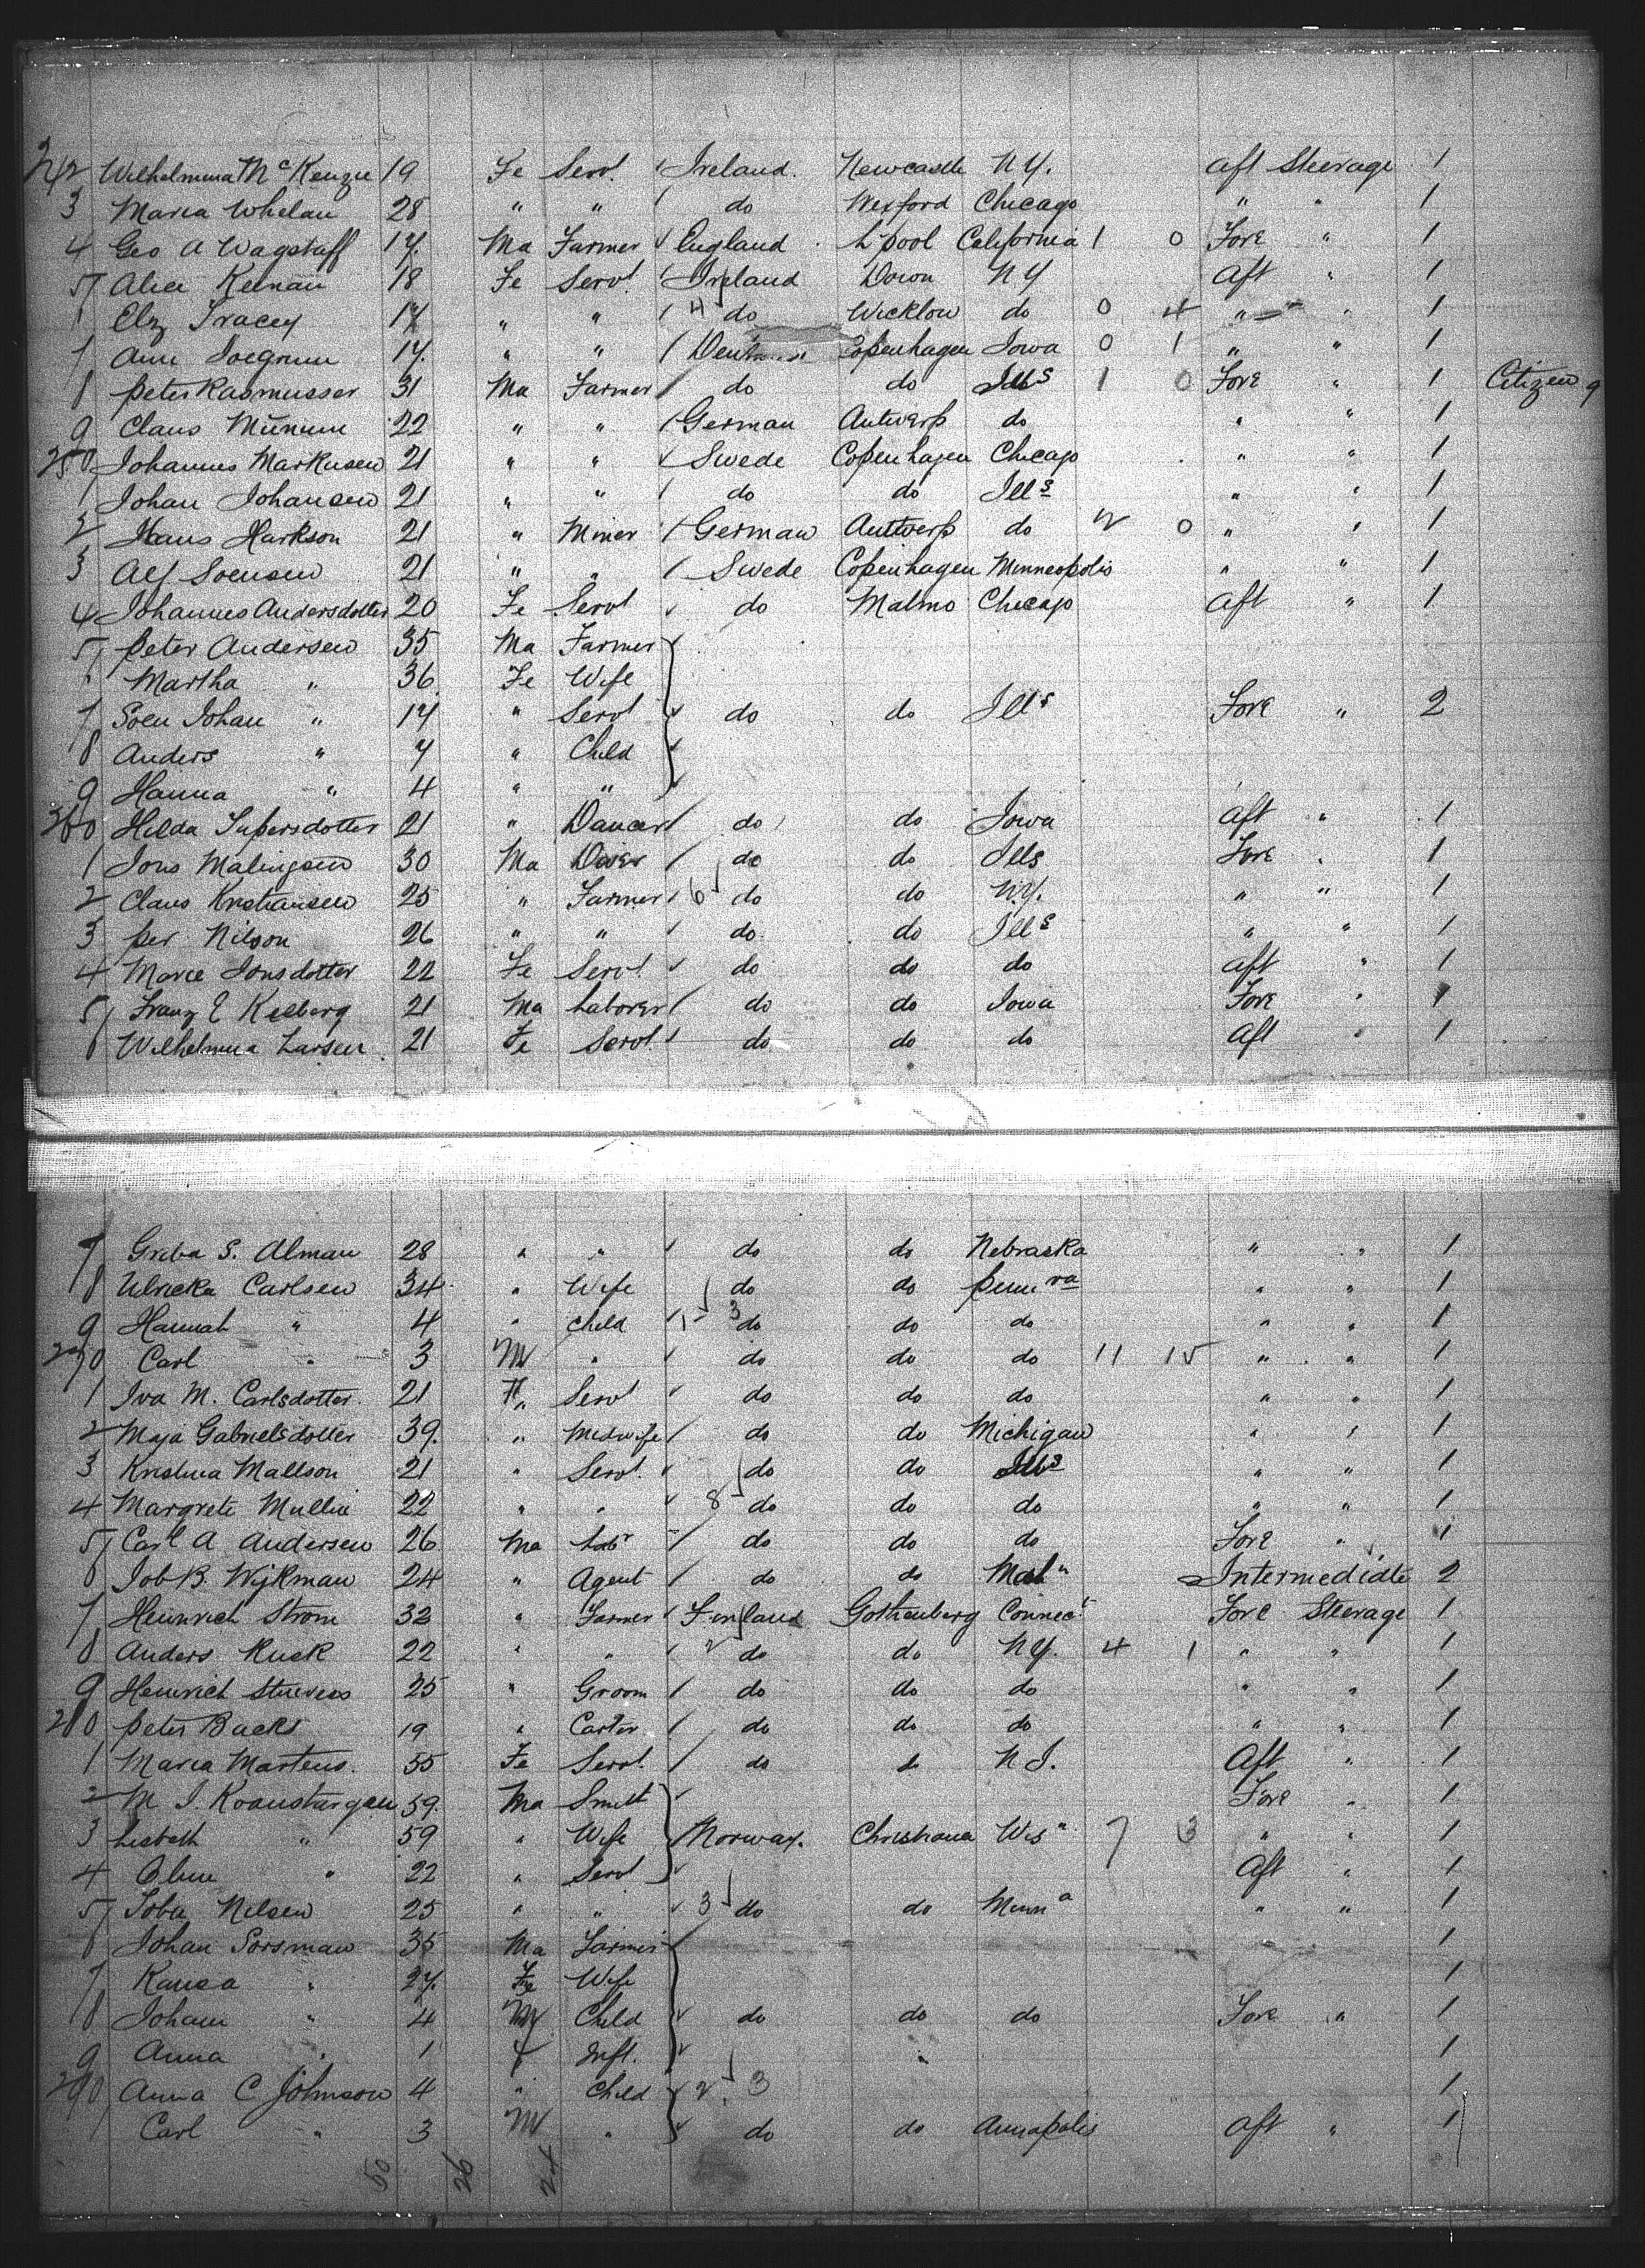 242 Wilhelmina McKenzie 19 Fe Servt. Ireland. Newcastle N.Y. Aft Steerage 1
3 Maria Whelan 28 " " do Wexford Chicago " " 1
4 Geo A Wagstaff 17. Ma Farmer England L'pool California 1 0 Fore " 1
5 Alice Keenan 18 Fe Servt. Ireland Down NY Aft " 1
Elz Tracey 17 " " 4 do Wicklow do 0 4 " " 1
7 Ann 17. " " Copenhagen Iowa 0 1 " " 1
8 Peter Rasmusser 31 Ma Farmer do do Ills 1 0 Fore " 1 Citizen
9 Claus 22 " " German Antwerp do " " 1
250 Johannes Markusen 21 " " Swede Copenhagen Chicago " " 1
1 Johan Johansen 21 " " do do Ills " " 1
2 Hans Harkson 21 " Miner German Antwerp do 2 0 " " 1
3 Alf Soensen 21 " " Swede Copenhagen Minneopolis " " 1
4 Johannes Andersdotter 20 Fe Servt do Malmo Chicago Aft " 1
5 Peter Andersen 35 Ma Farmer
Martha " 36 Fe Wife
7 Soen Johan " 17 " Servt do do Ills Fore " 2
8 Anders " 7 " Child
9 Hanna " 4 " "
260 Hilda 21 " Dancer do do Iowa Aft " 1
1 Jons Malingsen 30 Ma do do Ills Fore " 1
2 Claus Kristiansen 25 " Farmer 6 do do N.Y. " " 1
3 Per Nilson 26 " " do do Ills " " 1
4 Marie Jonsdotter 22 Fe Servt. do do do Aft " 1
5 Franz E Kelberg 21 Ma Laborer do do Iowa Fore " 1
6 Wilhelmina Larsen 21 Fe Servt. do do do Aft " 1
7 S. Alman 28 " " do do Nebraska " " 1
8 Ulricka Carlsen 34 " Wife do do Pennva " " 1
9 Hannah " 4 " Child 3 do do do " " 1
270 Carl " 3 M " do do do 11 15 " " 1
1 Iva M. Carlsdotter 21 F Servt do do do " " 1
2 Maja Gabrielsdotter 39. " Midwife do do Michigan " " 1
3 Kristina Mallson 21 " Servt. do do Ills " " 1
4 Margrete 22 " " 8 do do do " " 1
5 Carl A Andersen 26 Ma Labr do do do Fore " 1
6 Job B. Wijkman 24 " Agent do do Intermediate 2
7 Heinrich Strom 32 " Farmer Finland Gothenberg Connect Fore Steerage 1
8 Anders Kusk 22 " " 2 do do N.Y. 4 1 " " 1
9 Heinrich 25 " Groom do do do " " 1
280 Peter Backs 19 " Carter do do do " " 1
1 Maria Martens. 55 Fe Servt. do do N J. Aft " 1
2 M J. 59. Ma Smith Fore " 1
3 Lisbeth " 59 " Wife Norway. Christiana Wisn 7 3 " " 1
4 " 22 " Servt Aft " 1
5 Nelsen 25 " " 3 do do Minna " " 1
6 Johan Sorsman 35 Ma Farmer 1
7 " 27. Fe Wife 1
8 Johan " 4 M Child do do do Fore " 1
9 Anna " 1 f Inft. 1
290 Anna C Johnson 4 " Child 2 3 1
1 Carl " 3 M " do do Annapolis Aft " 1
50 26 24